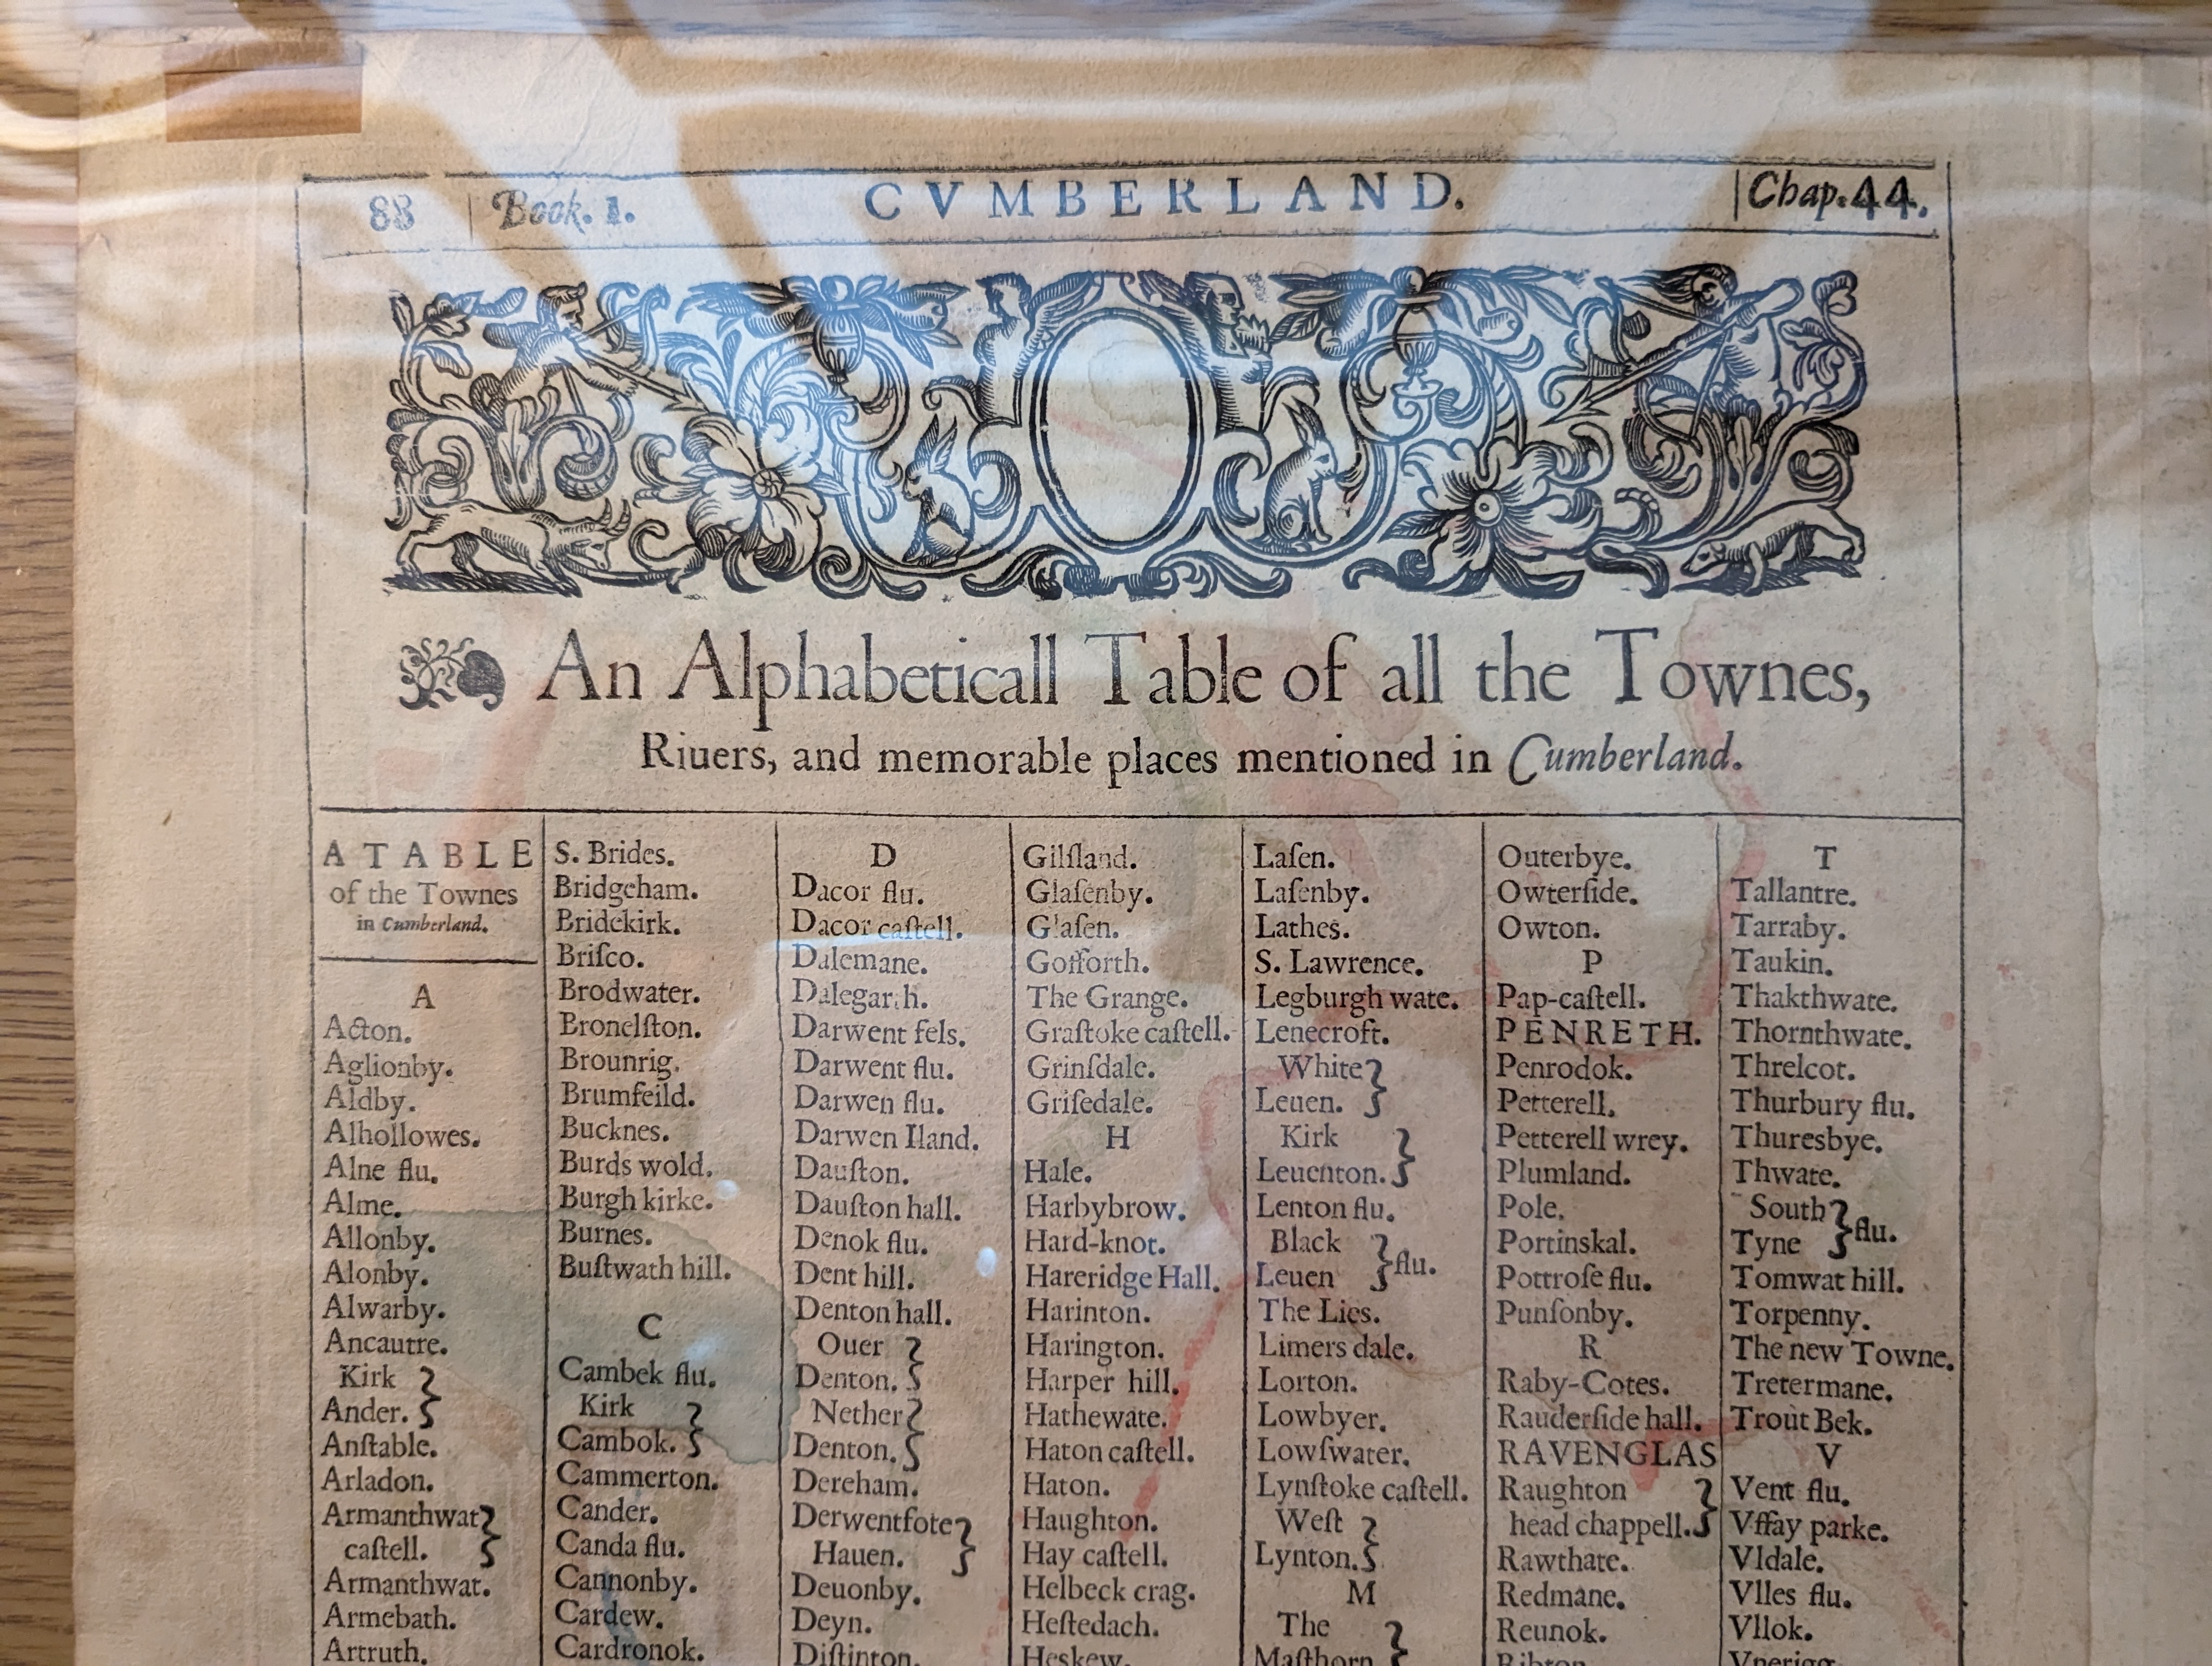 88
Book. 1.
CVMBERLAND.
Chap.44.
An Alphabeticall Table of all the Townes,
Riuers, and memorable places mentioned in Cumberland.
A TABLE
of the Townes
in Cumberland.
A
Acton.
Aglionby.
Aldby.
Alhollowes.
Alne flu.
Alme.
Allonby.
Alonby.
Alwarby.
Ancautre.
Kirk
Ander.
Anſtable.
Arladon.
Armanthwat
caſtell.
Armanthwat.
Armebath.
Artruth.
S. Brides.
Bridgeham.
Bridekirk.
Briſco.
Brodwater.
Bronelſton.
Brounrig.
Brumfeild.
Bucknes.
Burds wold.
Burgh kirke.
Burnes.
Buſtwath hill.
C
Cambek flu.
Kirk
Cambok.
Cammerton.
Cander.
Canda flu.
Cannonby.
Cardew.
Cardronok.
D
Dacor flu.
Dacor caſtell.
Dalemane.
Dalegarth.
Darwent fels.
Darwent flu.
Darwen flu.
Darwen Iland.
Dauſton.
Dauſton hall.
Denok flu.
Dent hill.
Denton hall.
Ouer
Denton.
Nether
Denton.
Dereham.
Derwentfote
Hauen.
Deuonby.
Deyn.
Diſtinton.
Gilſland.
Glaſenby.
Glaſen.
Gofforth.
The Grange.
Graſtoke caſtell.
Grinſdale.
Griſedale.
H
Hale.
Harbybrow.
Hard-knot.
Hareridge Hall.
Harinton.
Harington.
Harper hill.
Hathewate.
Haton caſtell.
Haton.
Haughton.
Hay caſtell.
Helbeck crag.
Heſtedach.
Heskew.
Laſen.
Laſenby.
Lathes.
S. Lawrence.
Legburgh wate.
Lenecroft.
White
Leuen.
Kirk
Leuenton.
Lenton flu.
Black
Leuen flu.
The Lies.
Limers dale.
Lorton.
Lowbyer.
Lowſwater.
Lynſtoke caſtell.
Weſt
Lynton.
M
The
Maſthorn
Outerbye.
Owterſide.
Owton.
P
Pap-caſtell.
PENRETH.
Penrodok.
Petterell.
Petterell wrey.
Plumland.
Pole.
Portinskal.
Pottroſe flu.
Punſonby.
R
Raby-Cotes.
Rauderſide hall.
RAVENGLAS
Raughton
head chappell.
Rawthate.
Redmane.
Reunok.
Ribton
T
Tallantre.
Tarraby.
Taukin.
Thakthwate.
Thornthwate.
Threlcot.
Thurbury flu.
Thuresbye.
Thwate.
South
Tyne flu.
Tomwat hill.
Torpenny.
The new Towne.
Tretermane.
Trout Bek.
V
Vent flu.
Vffay parke.
Vldale.
Vlles flu.
Vllok.